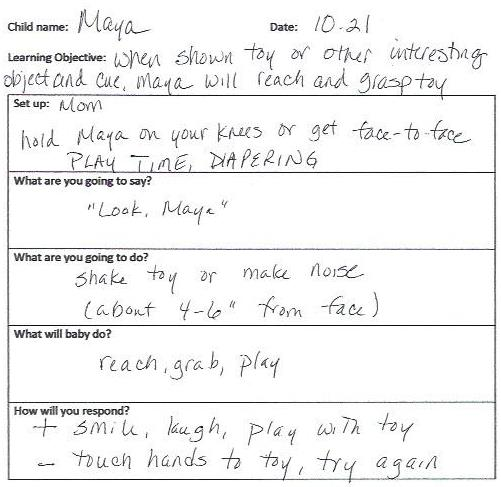 Child name: Maya Date: 10-21
Learning Objective: When shown toy or other interesting
object and cue, Maya will reach and grasp toy
Set up: Mom
hold Maya on your knees or get face-to-face
PLAY TIME, DIAPERING
What are you going to say?
"Look, Maya"
What are you going to do?
shake toy or make noise
(about 4-6" from face)
What will baby do?
reach, grab, play
How will you respond?
+ smile, laugh, play with toy
- touch hands to toy, try again